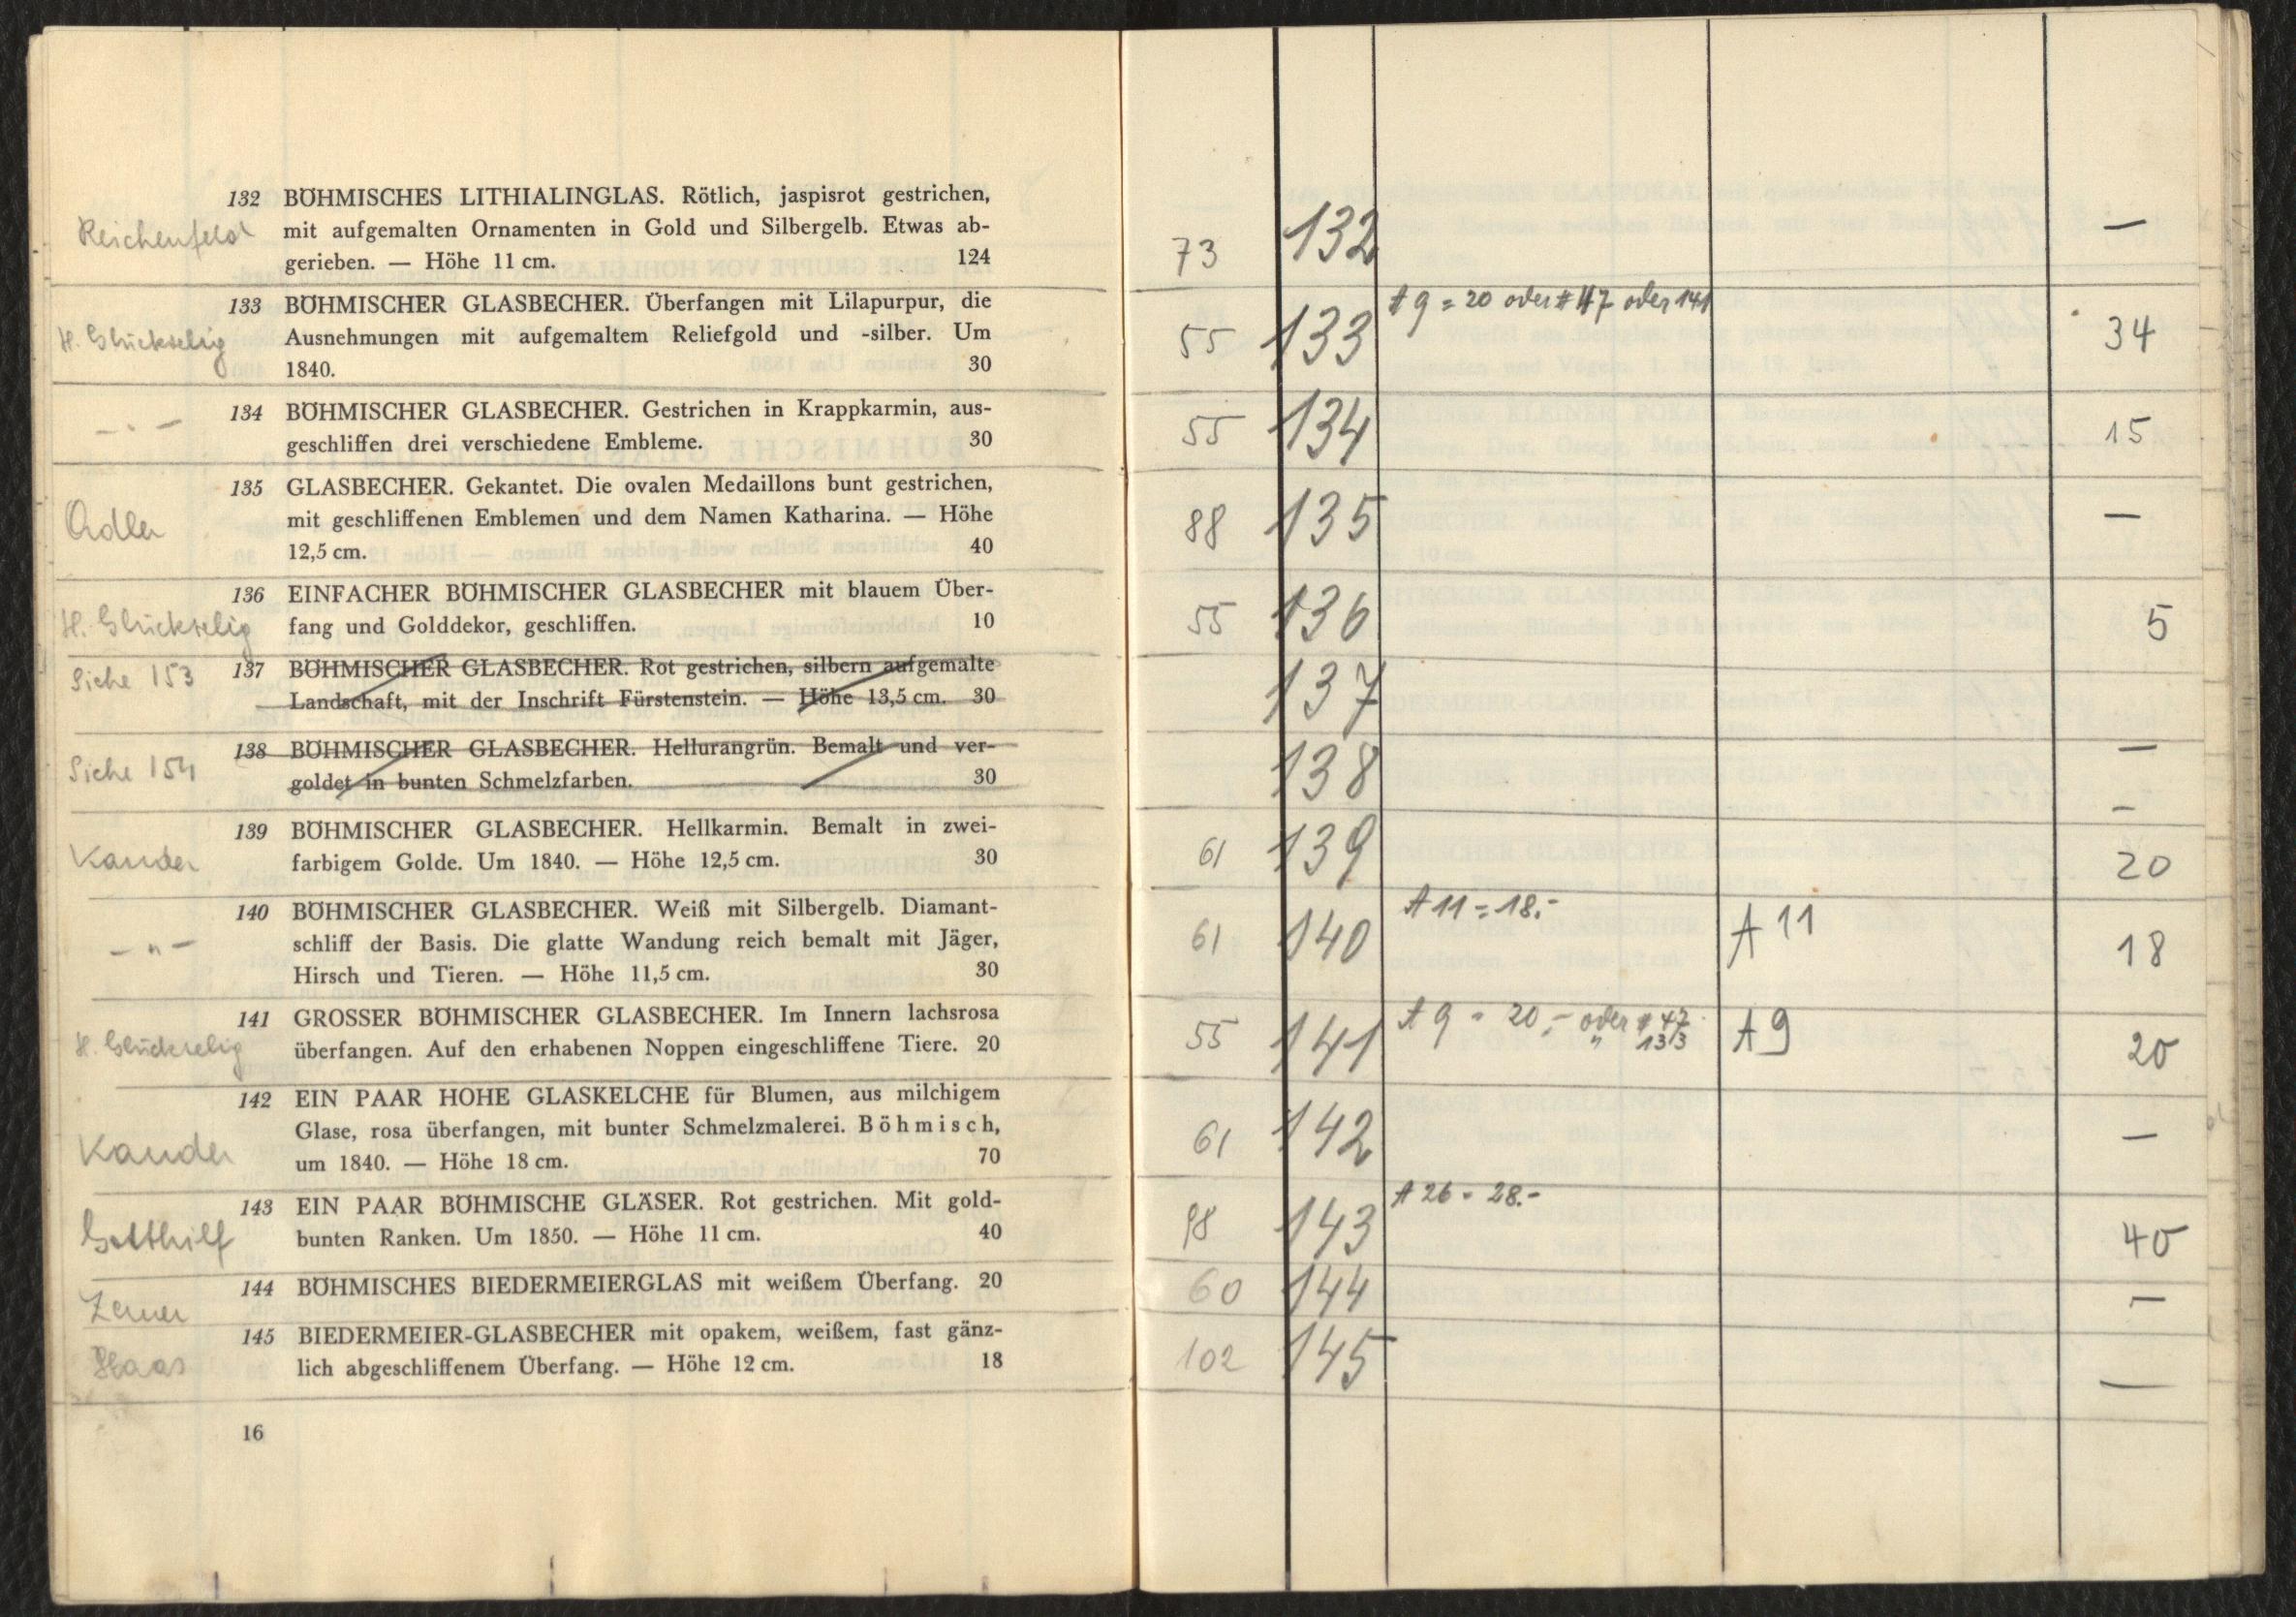 132 BÖHMISCHES LITHIALINGLAS. Rötlich, jaspisrot gestrichen,
Reichenfeld mit aufgemalten Ornamenten in Gold und Silbergelb. Etwas ab-
gerieben. — Höhe 11 cm. 124
133 BÖHMISCHER GLASBECHER. Überfangen mit Lilapurpur, die
H. Glückselig Ausnehmungen mit aufgemaltem Reliefgold und -silber. Um
1840. 30
134 BÖHMISCHER GLASBECHER. Gestrichen in Krappkarmin, aus-
— " — geschliffen drei verschiedene Embleme. 30
135 GLASBECHER. Gekantet. Die ovalen Medaillons bunt gestrichen,
Adler mit geschliffenen Emblemen und dem Namen Katharina. — Höhe
12,5 cm. 40
136 EINFACHER BÖHMISCHER GLASBECHER mit blauem Über-
H. Glückselig fang und Golddekor, geschliffen. 10
Siehe 153 137 BÖHMISCHER GLASBECHER. Rot gestrichen, silbern aufgemalte
Landschaft, mit der Inschrift Fürstenstein. — Höhe 13,5 cm. 30
138 BÖHMISCHER GLASBECHER. Hellurangrün. Bemalt und ver-
Siehe 154 goldet in bunten Schmelzfarben. 30
139 BÖHMISCHER GLASBECHER. Hellkarmin. Bemalt in zwei-
Kander farbigem Golde. Um 1840. — Höhe 12,5 cm. 30
140 BÖHMISCHER GLASBECHER. Weiß mit Silbergelb. Diamant-
— " — schliff der Basis. Die glatte Wandung reich bemalt mit Jäger,
Hirsch und Tieren. — Höhe 11,5 cm. 30
141 GROSSER BÖHMISCHER GLASBECHER. Im Innern lachsrosa
H. Glückselig überfangen. Auf den erhabenen Noppen eingeschliffene Tiere. 20
142 EIN PAAR HOHE GLASKELCHE für Blumen, aus milchigem
Glase, rosa überfangen, mit bunter Schmelzmalerei. Böhmisch,
Kander um 1840. — Höhe 18 cm. 70
143 EIN PAAR BÖHMISCHE GLÄSER. Rot gestrichen. Mit gold-
Gotthilf bunten Ranken. Um 1850. — Höhe 11 cm. 40
144 BÖHMISCHES BIEDERMEIERGLAS mit weißem Überfang. 20
Zerner
145 BIEDERMEIER-GLASBECHER mit opakem, weißem, fast gänz-
Haas lich abgeschliffenem Überfang. — Höhe 12 cm. 18
16
73 132 —
A 9 = 20 oder # 47 oder 141
55 133 34
55 134 15
88 135 —
55 136 5
137 —
138 —
61 139 20
A 11 = 18.-
61 140 A 11 18
A 9 = 20,- oder # 47
" 133
55 141 A 9 20
61 142 —
A 26 = 28.-
98 143 40
60 144 —
102 145 —